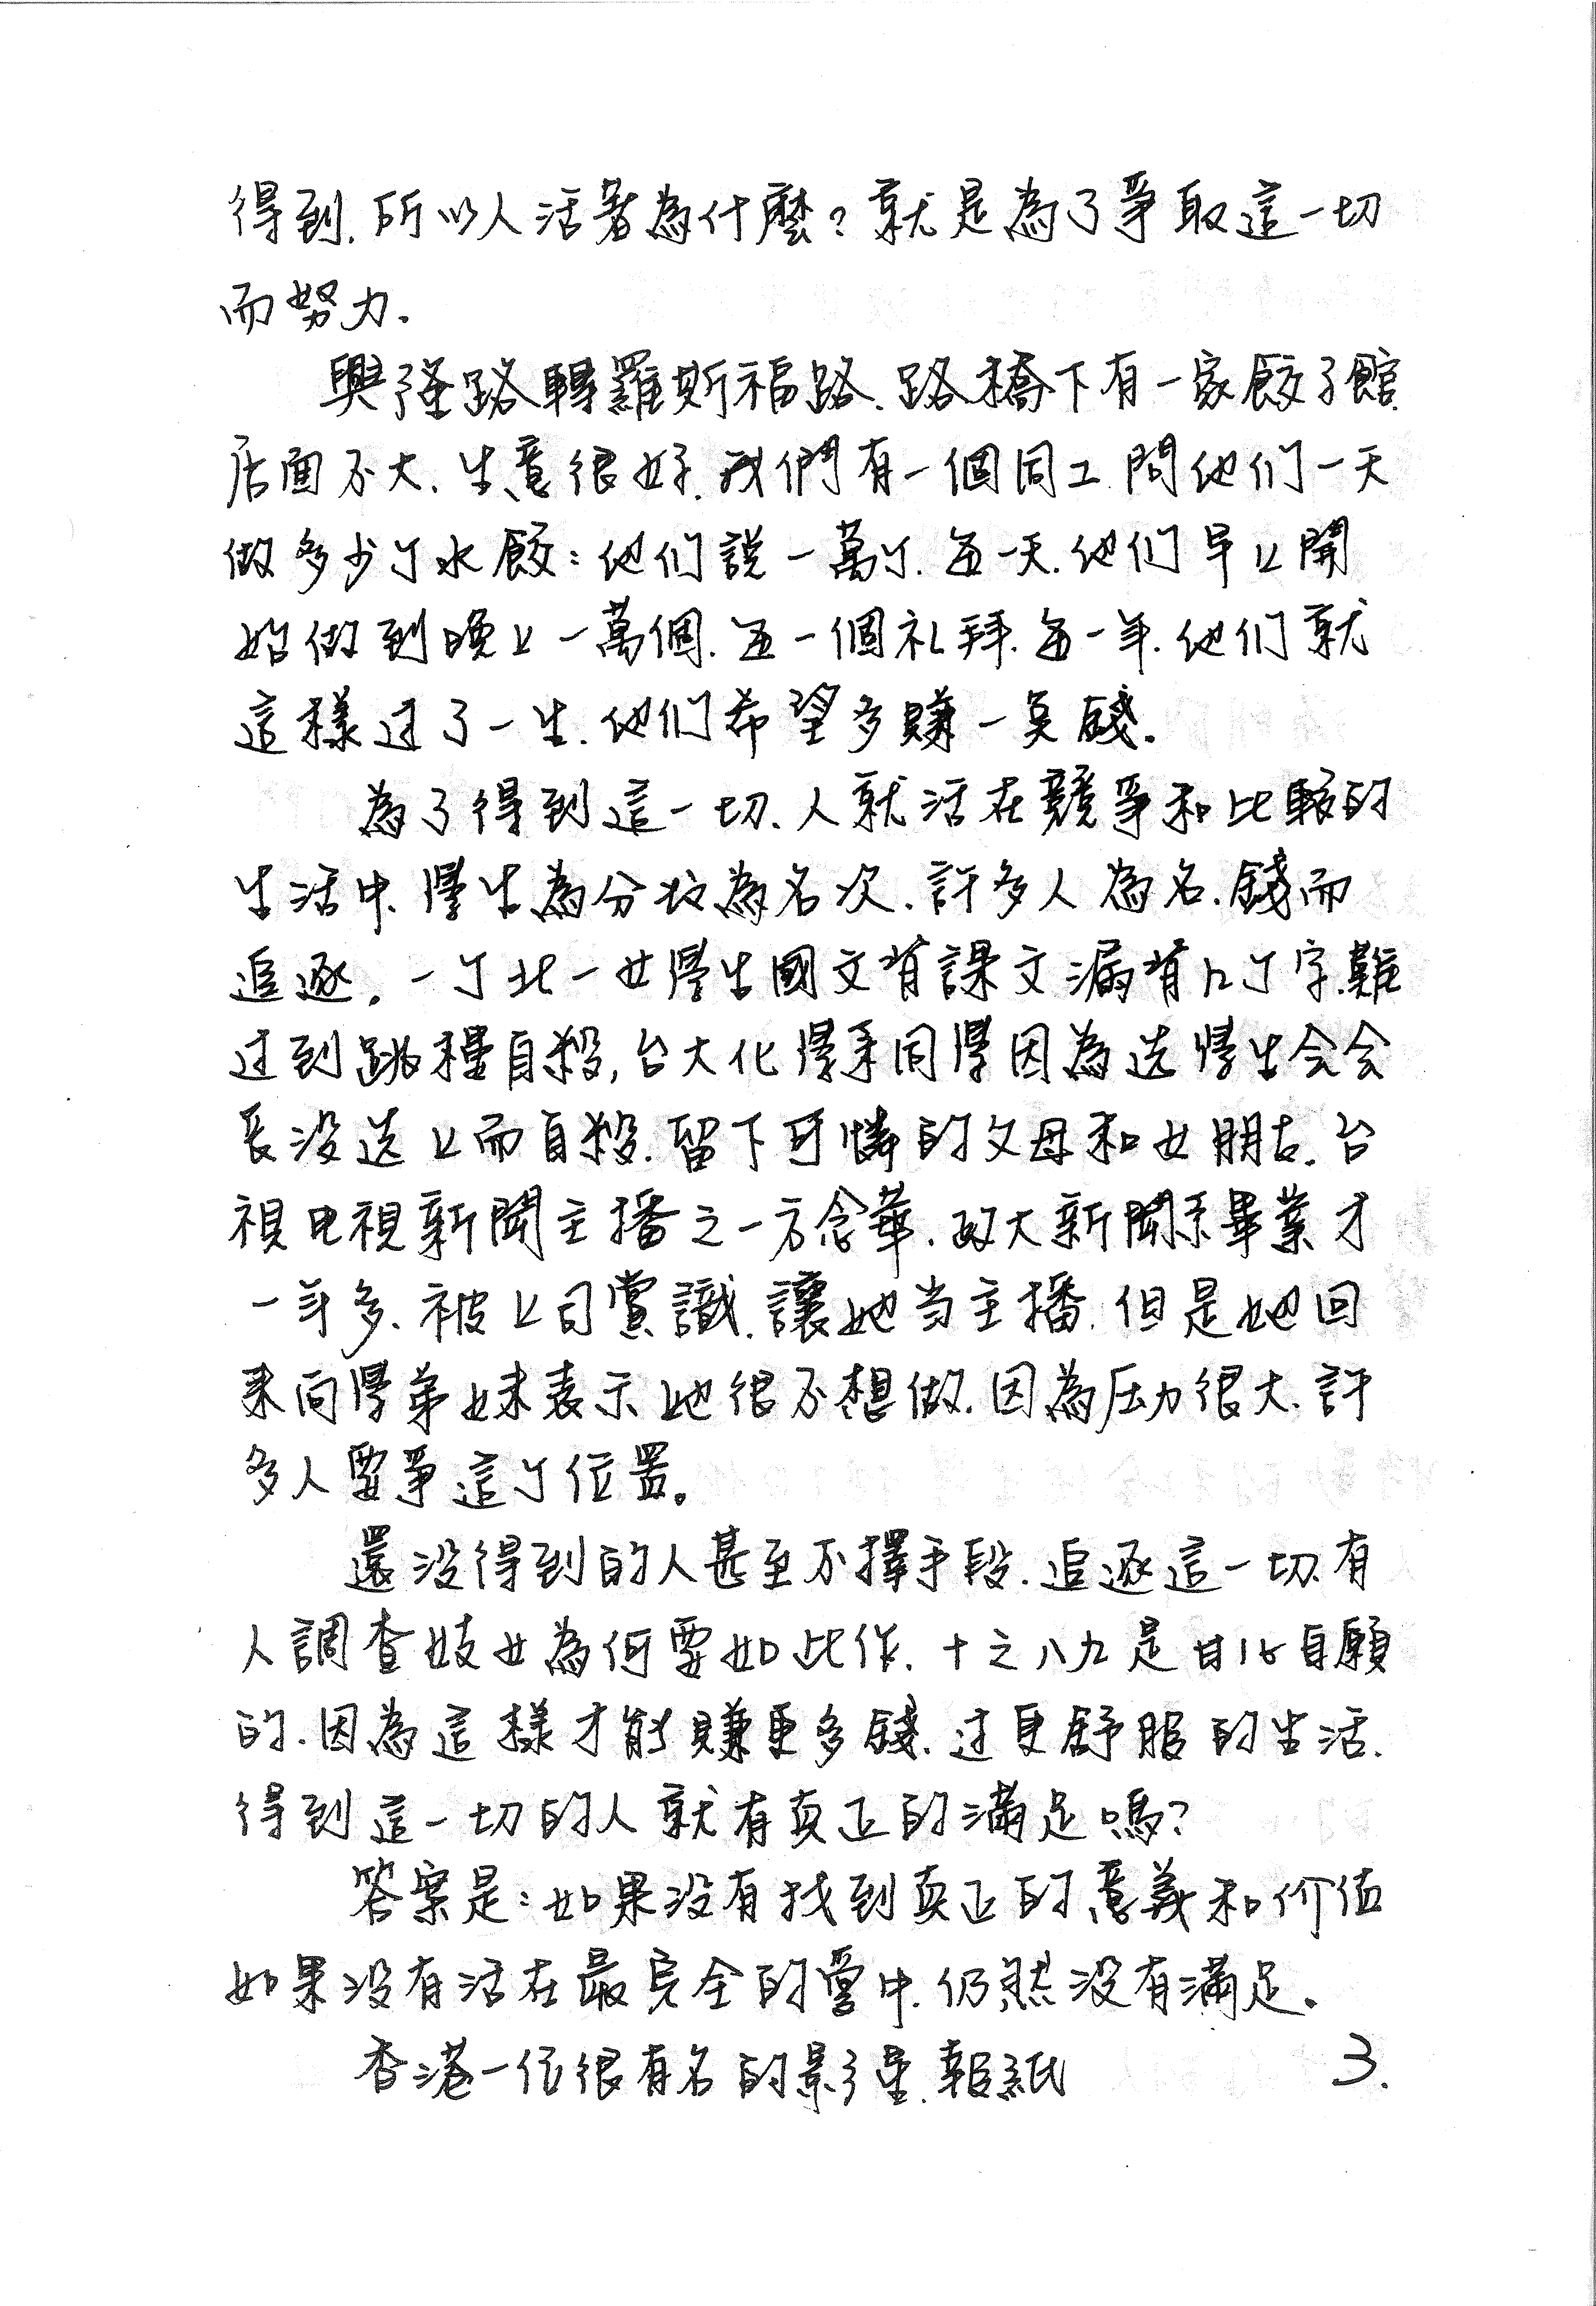 得到.所以人活著為什麼?就是為了爭取這一切
而努力.
興隆路轉羅斯福路.路橋下有一家餃子館.
店面不大.生意很好.我們有一個同工.問他们一天
做多少个水餃:他们說一萬个.每一天.他们早上開
始做到晚上一萬個.每一個礼拜.每一年.他们就
這樣过了一生.他们希望多賺一点錢.
為了得到這一切.人就活在競爭和比較的
生活中.學生為分数為名次.許多人為名.錢而
追逐.一个北一女學生國文背課文漏背几个字.難
过到跳樓自殺,台大化學系同學因為选學生会会
長没选上而自殺.留下可憐的父母和女朋友.台
視电視新聞主播之一方念華.政大新聞系畢業才
一年多.被上司賞識.讓她当主播.但是她回
来向學弟妹表示她很不想做.因為压力很大.許
多人要爭這个位置。
還没得到的人甚至不擇手段.追逐這一切.有
人調查妓女為何要如此作.十之八九是甘心自願
的.因為這樣才能賺更多錢.过更舒服的生活.
得到這一切的人就有真正的滿足嗎?
答案是:如果没有找到真正的意義和价值
如果没有活在最完全的愛中.仍然没有滿足.
香港一位很有名的影星.報紙
3.